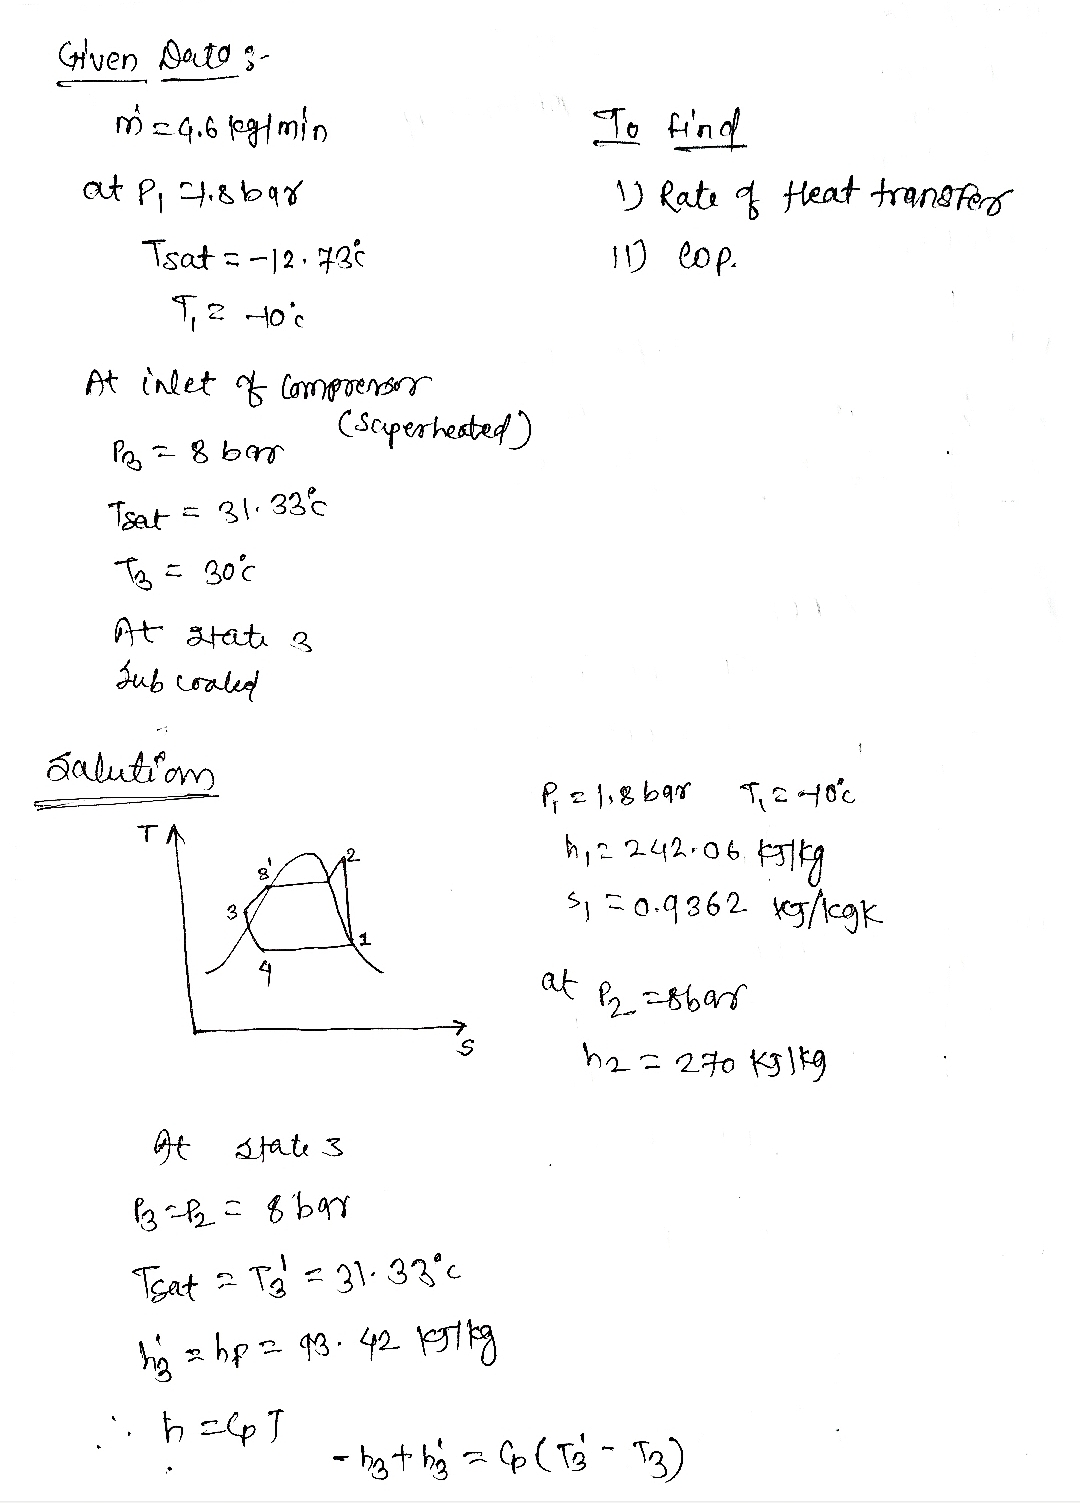 Given Data :-
ṁ = 4.6 kg/min
at P₁ = 1.8 bar
Tsat = -12.73°c
T₁ = -10°c
At inlet of Compressor
(Superheated)
P₃ = 8 bar
Tsat = 31.33°c
T₃ = 30°c
At state 3
Sub cooled
To find
i) Rate of Heat transfer
ii) COP.
Solution
T
3'
2
3
1
4
S
P₁ = 1.8 bar T₁ = -10°c
h₁ = 242.06 kJ/kg
s₁ = 0.9362 kJ/kgK
at P₂ = 8bar
h2 = 270 kJ/kg
At state 3
P₃ = P₂ = 8 bar
Tsat = T₃' = 31.33°c
h₃' = hf = 93.42 kJ/kg
∴ h = Cp T
- h₃ + h₃' = Cp (T₃' - T₃)